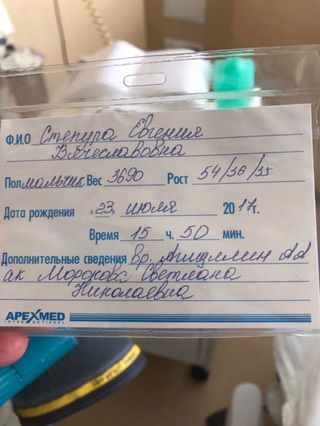 Ф.И.О Степура Евгения
Вячеславовна
Пол мальчик Вес 3690 Рост 54/36/35
Дата рождения «23» июля 2017г.
Время 15 ч. 50 мин.
Дополнительные сведения Вр. АА
ак Светлана
Николаевна
APEXMED
INTERNATIONAL